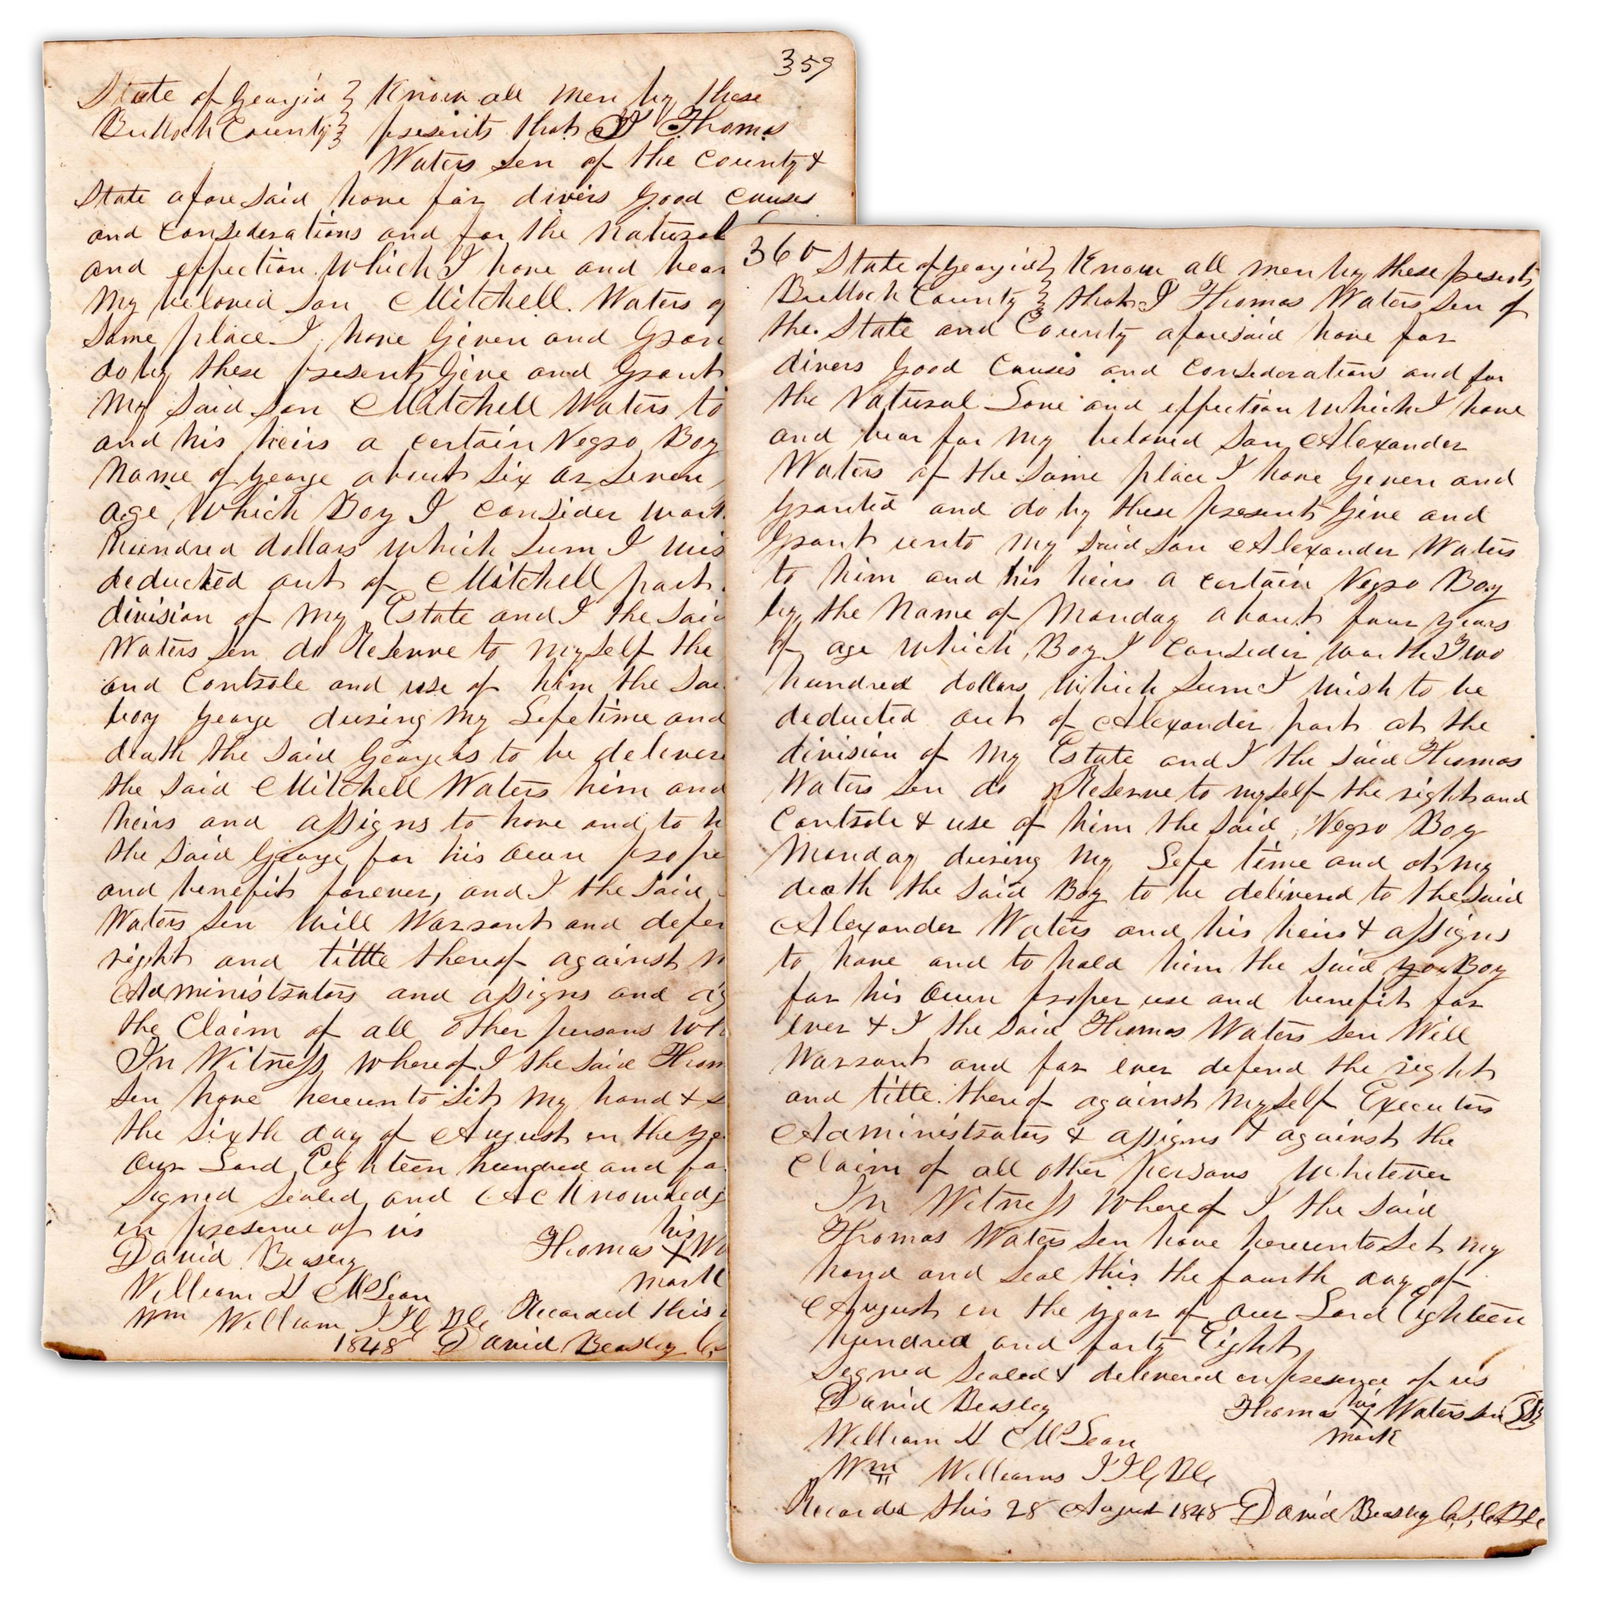 359
State of Georgia } Know all men by these
Bulloch County } presents that I Thomas
Waters Sen of the County &
State afore Said have for divers Good Causes
and Considerations and for the Natural
and effection which I have and bear
My beloved Son Mitchell Waters of
Same place I have Given and Gran
do by these presents Give and Grant
My Said Son Mitchell Waters to
and his heirs a certain Negro Boy
Name of George about Six or Seven
age which Boy I consider wort
hundred dollars which Sum I wis
deducted out of Mitchell part
division of My Estate and I the Said
Waters Sen do Reserve to myself the
and Controle and use of him the Sai
boy George dusing My Lifetime and
death the Said George is to be deliver
the Said Mitchell Waters him and
heirs and assigns to have and to h
the Said George for his Own prope
and benefit forever, and I the Said
Waters Sen Will Warrant and defen
right and tittle thereof against
Administrators and assigns and ag
the Claim of all other persons Wh
In Witness Whereof I the Said Thom
Sen have hereunto Sit My hand & S
the Sixth day of August in the ye
Our Lord Eighteen hundred and fo
Signed Sealed and Acknowledg
in presence of us
his
David Beasley Thomas X Wa
mark
William H McLean
Wm William Recorded this
1848 David Beasley
360
State of Georgia } Know all men by these presents
Bulloch County } that I Thomas Waters Sen of
the State and County aforesaid have for
divers Good Causes and Considerations and for
the Natural Love and effection which I have
and bear for My beloved Son Alexander
Waters of the Same place I have Given and
Granted and do by these presents Give and
Grant unto My Said Son Alexander Waters
to him and his heirs a certain Negro Boy
by the Name of Monday about four years
of age which Boy I Consider worth Two
hundred dollars which Sum I wish to be
deducted out of Alexander part at the
division of My Estate and I the Said Thomas
Waters Sen do Reserve to myself the right and
Controle & use of him the Said Negro Boy
Monday dusing My Life time and at my
death the Said Boy to be delivered to the Said
Alexander Waters and his heirs & assigns
to have and to hold him the Said Boy
for his Own proper use and benefit for
ever & I the Said Thomas Waters Sen Will
Warrant and for ever defend the right
and title thereof against Myself Executors
Administrators & assigns & against the
Claim of all other persons Whitever
In Witness Whereof I the Said
Thomas Waters Sen have hereunto Set my
hand and Seal this the fourth day of
August in the year of Our Lord Eighteen
hundred and forty Eight
Signed Sealed & delivered in presence of us
his
David Beasley Thomas X Waters Sen
mark
William H McLean
Wm Williams
Recorded this 28 August 1848 David Beasley